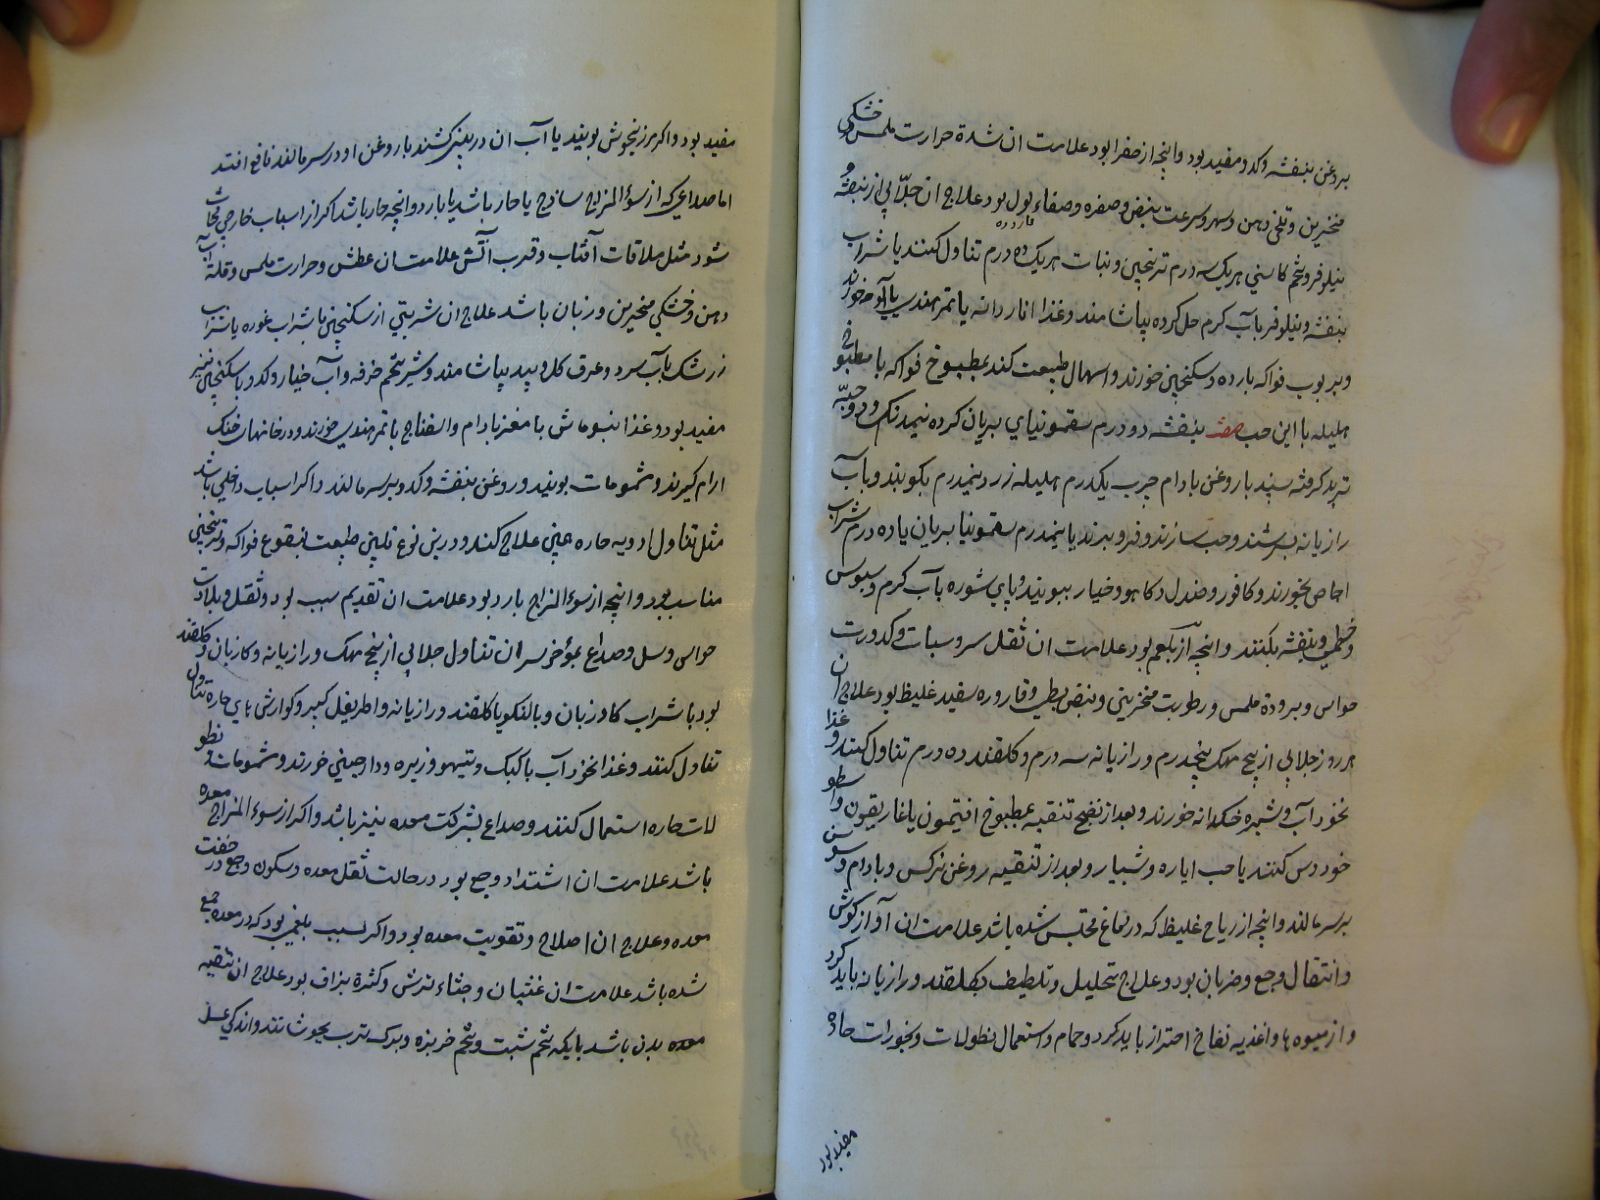 بروغن بنفشه وکدو مفید بود وانچه از صفرا بود علامت ان شدة حرارت ملمس وخشکی
منخرین وتلخی دهن وسهر وسرعت نبض وصفره وصفاء بول بود علاج ان جلابی از بنفشه و
قاروره
نیلوفر وتخم کاسنی هریک سه درم ترنجبین ونبات هریک ده درم تناول کنند یا شراب
بنفشه ونیلوفر بآب گرم حل کرده بیاشامند وغذا اناردانه یا تمر هندی یا آلو خورند
وبربوب فواکه بارده وسکنجبین خورند واسهال طبیعت کند بمطبوخ فواکه یا مطبوخ
هلیله با این حب صفته بنفشه دو درم سقمونیای بریان کرده نیمدنک ودو حبه
تربد کرفته سپید بروغن بادام چرب یکدرم هلیله زرد نیمدرم بکوبند وبآب
رازیانه بسرشند وحب سازند وفرو برند یا نیمدرم سقمونیا بریان یا ده درم شراب
اجاص بخورند وکافور وصندل وکاهو وخیار ببویند وپای شوره بآب کرم وسبوس
وخطمی وبنفشه بکنند وانچه از بلغم بود علامت ان ثقل سر وسبات وکدورت
حواس وبرودة ملمس ورطوبت منخرین ونبض بطی وقاروره سفید غلیظ بود علاج ان
هر روز جلابی از بیخ مهک پنجدرم ورازیانه سه درم وکلقند ده درم تناول کنند وغذا
نخود آب وشیره خسکدانه خورند وبعد از نضج تنقیه بمطبوخ افتیمون یا غاریقون واسطو
خودوس کنند یا حب ایاره وشبیار وبعد از تنقیه روغن نرکس وبادام وسوسن
برسر مالند وانچه از ریاح غلیظ که در دماغ محتبس شده باشد علامت ان آواز کوش
وانتقال وجع وضربان بود وعلاج تحلیل وتلطیف بکلقند ورازیانه باید کرد
واز میوه ها واغذیه نفاخ احتراز باید کرد وحمام واستعمال نطولات وبخورات حاره
مفید بود
مفید بود واکر مرزنجوش بویند یا آب ان در بینی کشند یا روغن او در سر مالند نافع افتد
اما صداعی که از سوء المزاج ساذج یا حار باشد یا بارد وانچه حار باشد اکر از اسباب خارجی
شود مثل ملاقات آفتاب وقرب آتش علامت ان عطش وحرارت ملمس وقلة آب
دهن وخشکی منخرین وزبان باشد علاج ان شربتی از سکنجبین یا شراب غوره یا شراب
زرشک بآب سرد وعرق کل وبید بیاشامند وشیر تخم خرفه وآب خیار وکدو با سکنجبین نیز
مفید بود وغذا بنوماش با مغز بادام واسفناج یا تمر هندی خورند ودر خانهای خنک
ارام کیرند وشمومات بویند وروغن بنفشه وکدو برسر مالند واکر اسباب داخلی باشد
مثل تناول ادویه حاره همین علاج کنند ودرین نوع تلیین طبیعت بنقوع فواکه وترنجبین
مناسب بود وانچه از سوء المزاج بارد بود علامت ان تقدیم سبب بود وثقل وبلادت
حواس وسل وصداع بمؤخر سر ان تناول جلابی از بیخ مهک ورازیانه وکازبان وکلقند
بود با شراب کاوزبان وبالنکو یا کلقند ورازیانه واطریفل کبیر وکوارش های حاره تناول
تناول کنند وغذا نخود آب با کبک وتیهو وزیره ودارچینی خورند وشمومات ونطو
لات حاره استعمال کنند وصداع بشرکت معده نیز باشد واکر از سوء المزاج معده
باشد علامت ان اشتداد وجع بود در حالت ثقل معده وسکون وجع در خفت
معده وعلاج ان اصلاح وتقویت معده بود واکر بسبب بلغمی بود که در معده جمع
شده باشد علامت ان غثیان وجشاء ترش وکثرة بزاق بود علاج ان تنقیه
معده بدن باشد بانکه تخم شبت وتخم خربزه وبرک ترب بجوشانند واندکی عسل